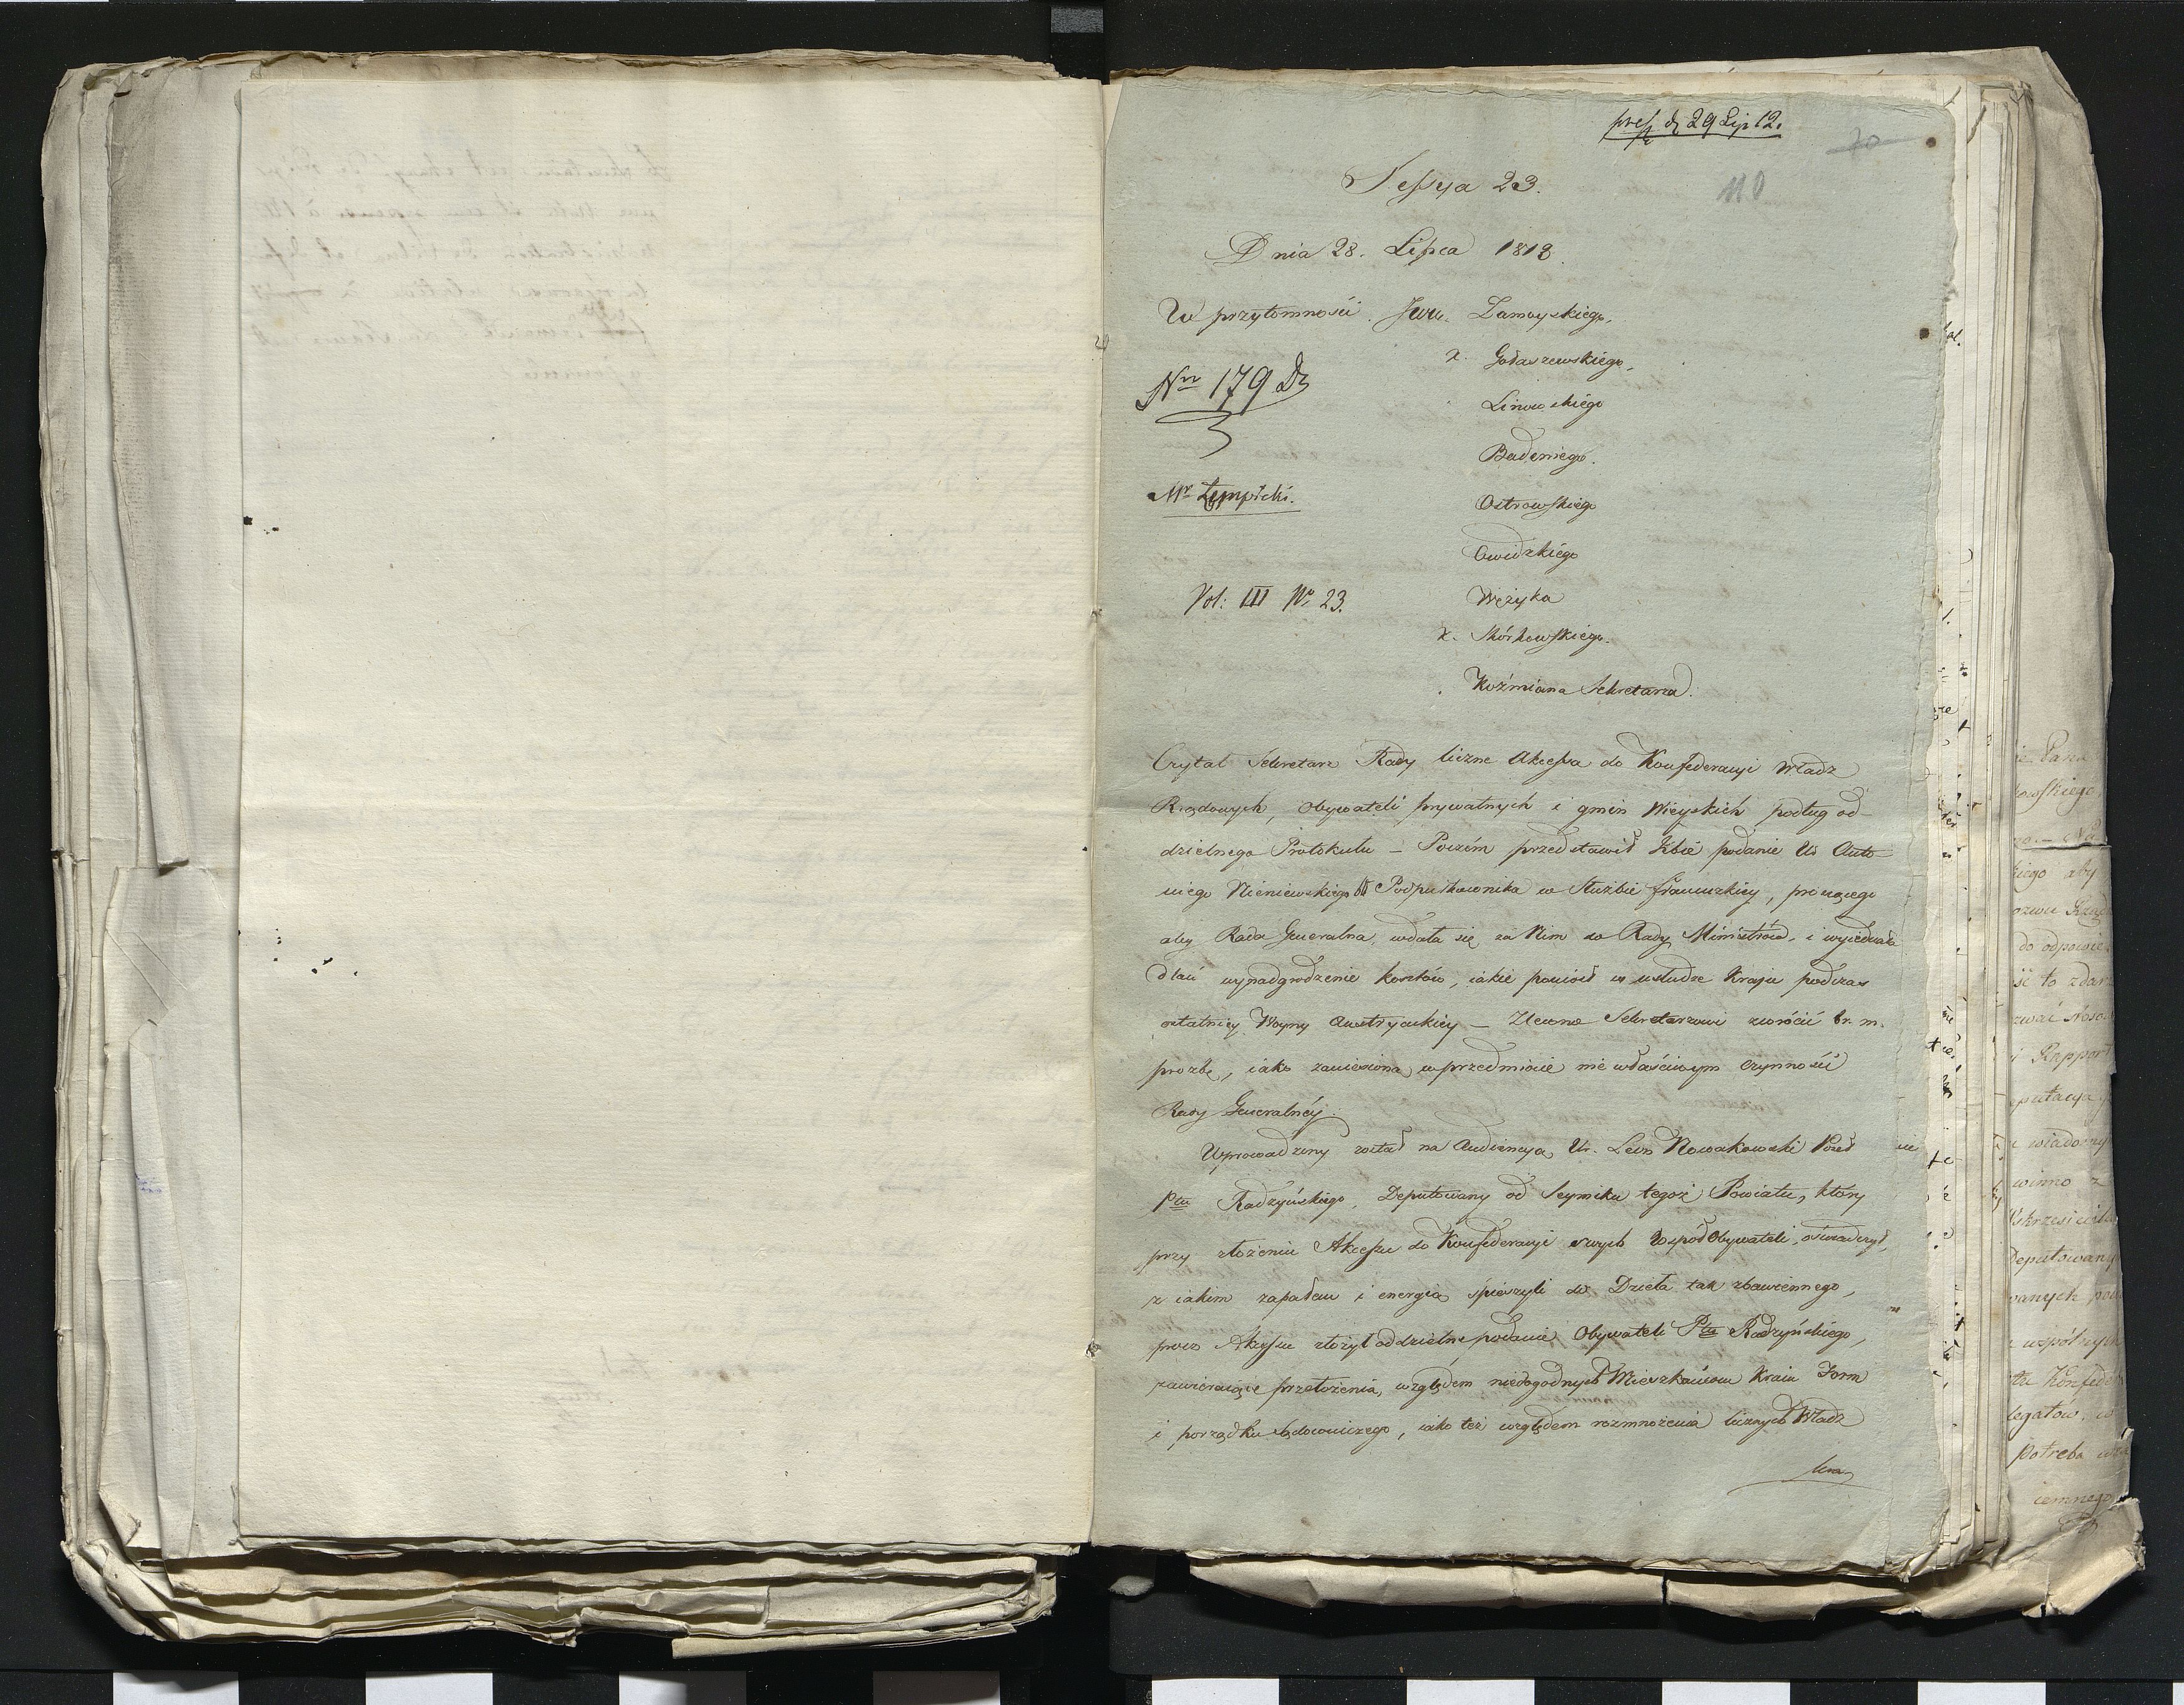 pres. d. 29 Lip 12.
70
110
Sessya 23.
Dnia 28. Lipca 1812.
W przytomności Jww. Zamoyskiego,
x. Gołaszewskiego,
Nro 179 Dz
Linowskiégo
Badeniego.
Mr Łempicki.
Ostrowskiego
Owidzkiégo
Vol: III No 23.
Wężyka
x. Skórkowskiego.
Koźmiana Sekretarza.
Czytał Sekretarz Rady liczne Akcessa do Konfederacyi Władz
Rządowych, Obywateli prywatnych i gmin Wieyskich podług od-
dzielnego Protokułu – Poczém przedstawił Izbie podanie Ur Anto-
niego Nieniewskiego Podpułkownika w Służbie francuzkiey, proszącego
aby Rada Generalna, wdała się za Nim do Rady Ministrów, i wyiednała
dlań wynadgrodzenie kosztów, iakie poniósł w usłudze Kraju podczas
ostatniey Woyny Austryackiey – Zlecono Sekretarzowi zwrócić br. m.
prozbę, iako zaniesioną w przedmiocie nie właściwym czynności
Rady Generalnéy.
Wprowadzony został na Audiencyą Ur. Leon Nowakowski Poseł
Ptu Radzyńskiego, Deputowany od Seymiku tegoż Powiatu, który
przy złożeniu Akcessu do Konfederacyi swych WspółObywateli, oświadczył,
z iakim zapałem i energią śpieszyli do Dzieła tak zbawiennego,
prócz Akcessu złożył oddzielne podanie Obywateli Ptu Radzyńskiégo,
zawieraiące przełożenia, względem niedogodnych Mieszkańcom Kraiu Form
i porządku sądowniczego, iako też względem rozmnożenia licznych Władz